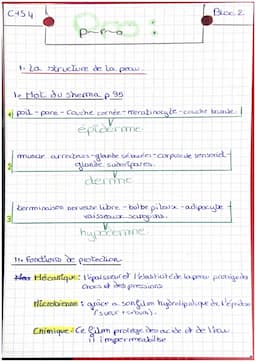 C4S4
Bloc 2
Pro :
1. La structure de la peau.
1. Mot du shema p 95
1 poil - pore - couche cornée - keratinocyte - couche basale.
épiderme.
2 muscle arrecteurs - glande sébacées - corpuscule sensoriel -
glande sudoripares.
derme
3 terminaison nerveuse libre - bulbe pilaire - adipocyte -
vaisseaux sanguins.
hypoderme.
11. Fonctions de protection
Mécanique : l'épaisseur et l'élasticité de la peau protège des
chocs et des pressions
Microbienne : grâce a son film hydrolipidique de l'épiderme
(sueur + sébum).
Chimique : Ce film protège des acide et de l'eau
il imperméabilise